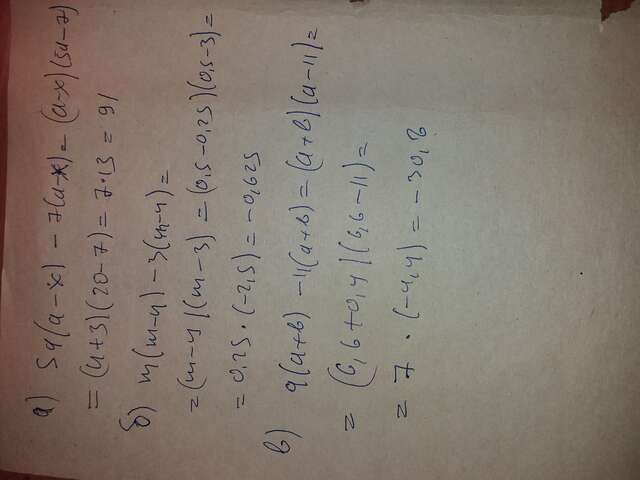 а) 5a(a-x) - 7(a-x) = (a-x)(5a-7)
= (4+3)(20-7) = 7·13 = 91
б) m(m-n) - 3(m-n) =
= (m-n)(m-3) = (0,5-0,25)(0,5-3) =
= 0,25·(-2,5) = -0,625
в) a(a+b) - 11(a+b) = (a+b)(a-11) =
= (6,6+0,4)(6,6-11) =
= 7·(-4,4) = -30,8